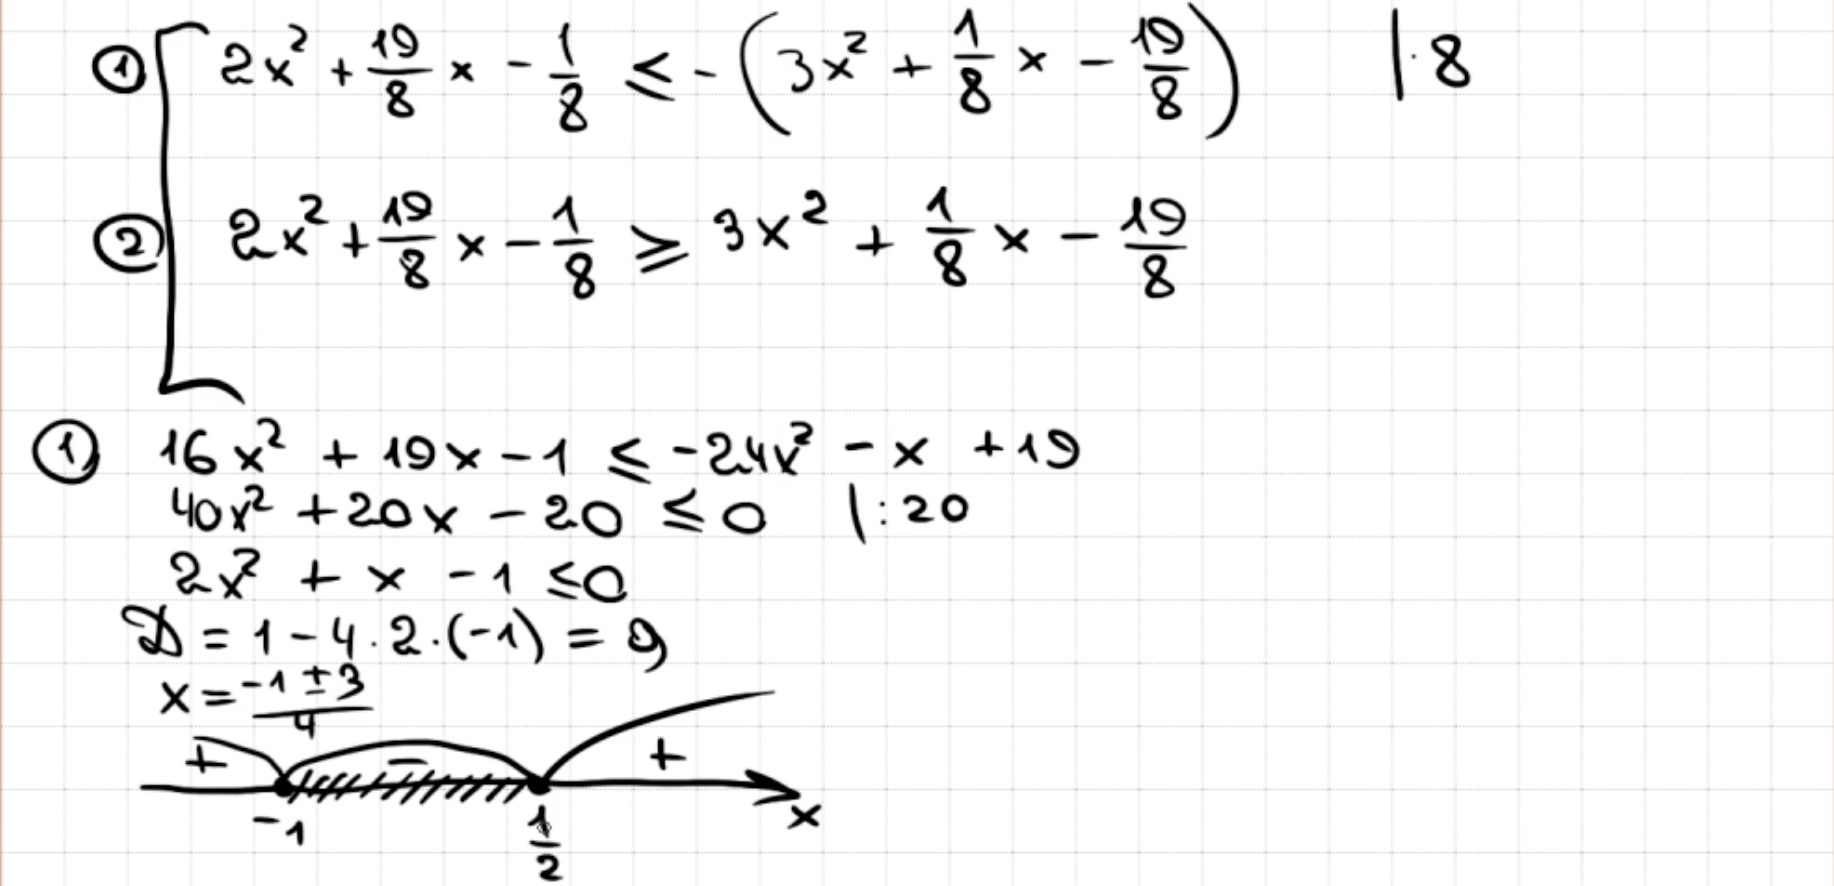 ① [ 2x² + 19/8 x - 1/8 ≤ - (3x² + 1/8 x - 19/8) |·8
② 2x² + 19/8 x - 1/8 ≥ 3x² + 1/8 x - 19/8
① 16x² + 19x - 1 ≤ -24x² - x + 19
40x² + 20x - 20 ≤ 0 |:20
2x² + x - 1 ≤ 0
D = 1 - 4·2·(-1) = 9
x = (-1 ± 3)/4
+ - +
-1 1/2 x